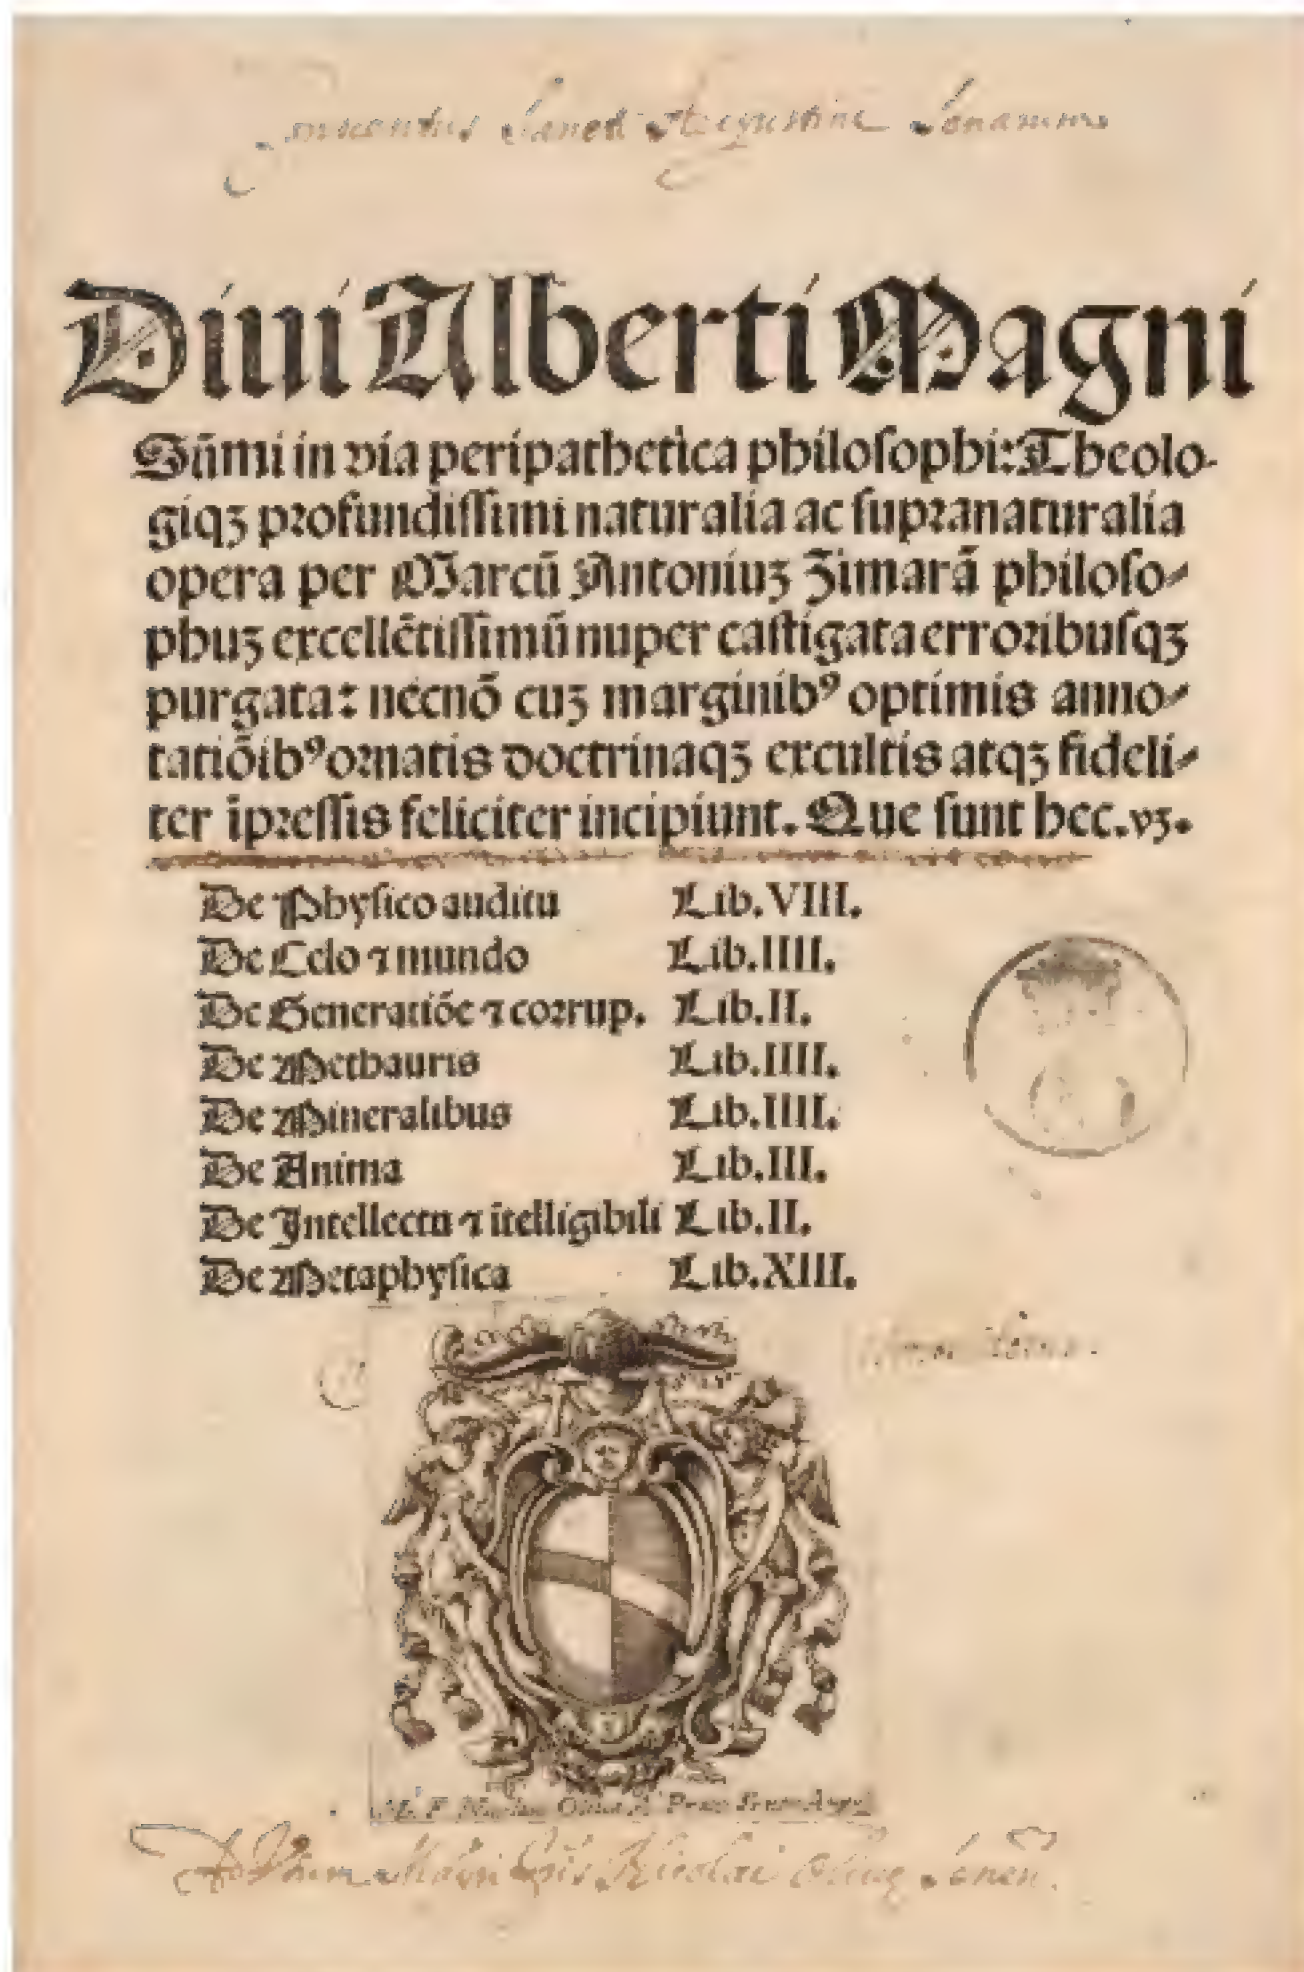 Conuentus Sancti Augustini Senarum
Diui Alberti Magni
Sūmi in via peripathetica philosophi: Theolo-
giqꝫ profundissimi naturalia ac supranaturalia
opera per Marcū Antoniuꝫ Zimarā philoso-
phuꝫ excellētissimū nuper castigata erroribusqꝫ
purgata: necnō cuꝫ marginibꝰ optimis anno-
tatiōibꝰ ornatis doctrinaqꝫ excultis atqꝫ fideli-
ter īpressis feliciter incipiunt. Que sunt hec. vꝫ.
De Physico auditu Lib. VIII.
De Celo ⁊ mundo Lib. IIII.
De Generatiōe ⁊ corrup. Lib. II.
De Methauris Lib. IIII.
De Mineralibus Lib. IIII.
De Anima Lib. III.
De Intellectu ⁊ ītelligibili Lib. II.
De Metaphysica Lib. XIII.
Nicolai Senen.